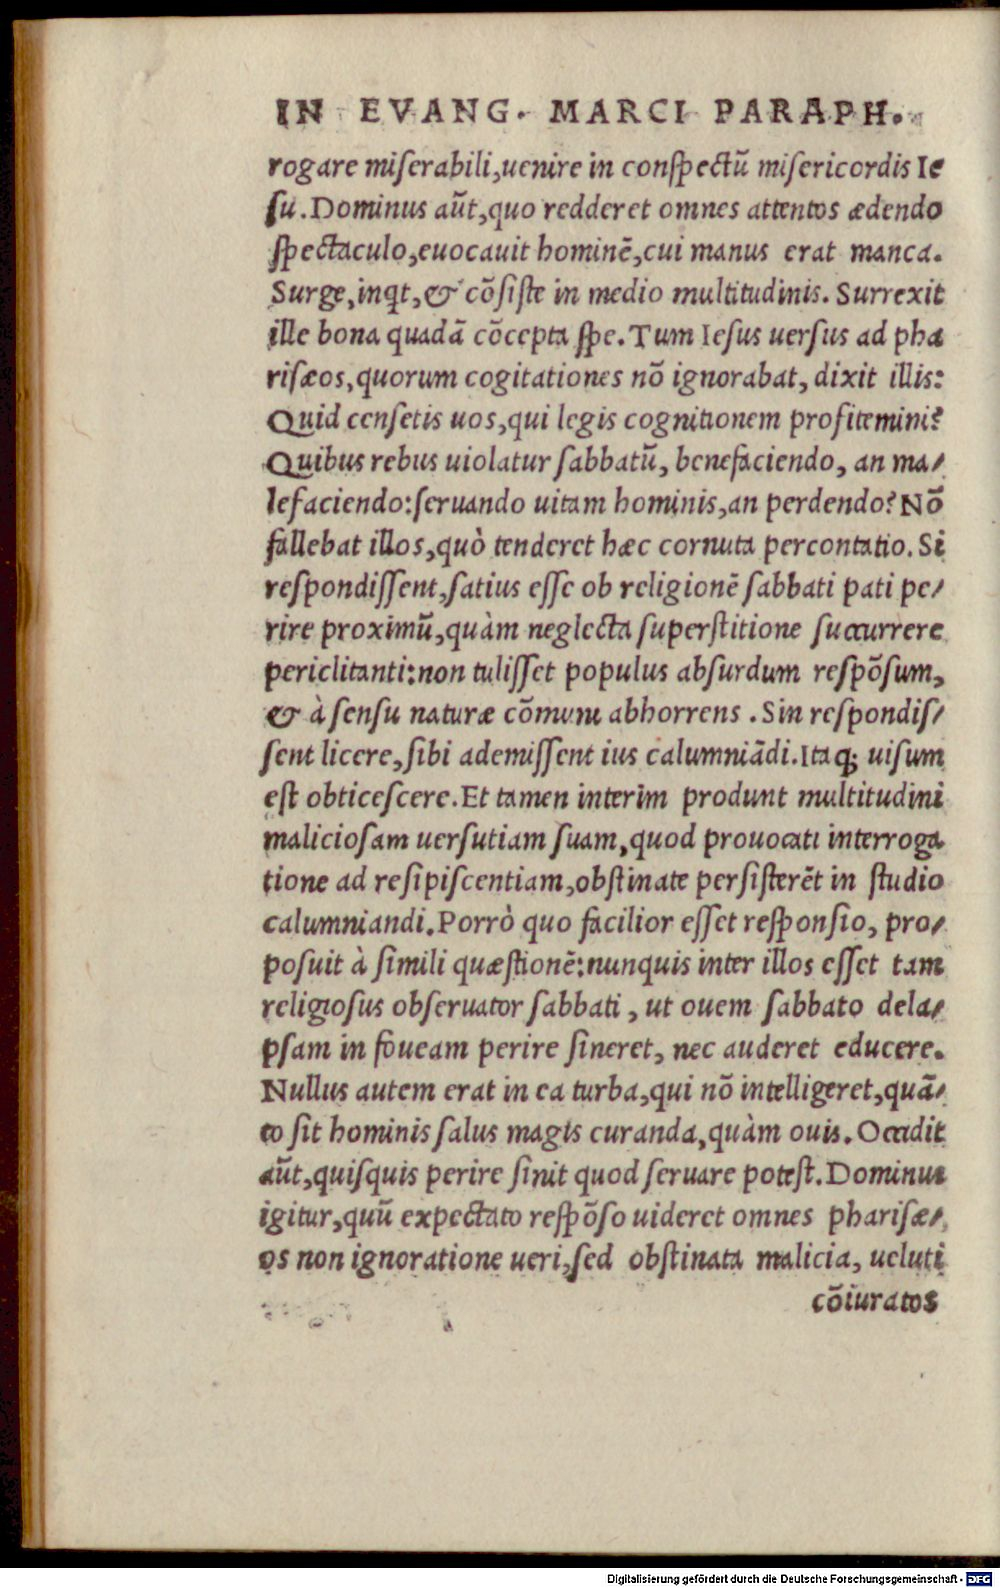 IN EVANG. MARCI PARAPH.
rogare miſerabili,uenire in conſpectū miſericordis Ie
ſu.Dominus aūt,quo redderet omnes attentos ædendo
ſpectaculo,euocauit hominē,cui manus erat manca.
Surge,inqt,& cōſiſte in medio multitudinis. Surrexit
ille bona quadā cōcepta ſpe.Tum Ieſus uerſus ad pha
riſæos,quorum cogitationes nō ignorabat, dixit illis:
Quid cenſetis uos,qui legis cognitionem profitemini?
Quibus rebus uiolatur ſabbatū, benefaciendo, an ma/
lefaciendo:ſeruando uitam hominis,an perdendo? Nō
fallebat illos,quò tenderet hæc cornuta percontatio. Si
reſpondiſſent,ſatius eſſe ob religionē ſabbati pati pe/
rire proximū,quàm neglecta ſuperſtitione ſuccurrere
periclitanti:non tuliſſet populus abſurdum reſpōſum,
& à ſenſu naturæ cōmuni abhorrens .Sin reſpondiſ/
ſent licere,ſibi ademiſſent ius calumniādi.Itaq; uiſum
eſt obticeſcere.Et tamen interim produnt multitudini
malicioſam uerſutiam ſuam,quod prouocati interroga
tione ad reſipiſcentiam,obſtinate perſiſterēt in ſtudio
calumniandi.Porrò quo facilior eſſet reſponſio, pro/
poſuit à ſimili quæſtionē:nunquis inter illos eſſet tam
religioſus obſeruator ſabbati, ut ouem ſabbato dela/
pſam in foueam perire ſineret, nec auderet educere.
Nullus autem erat in ea turba,qui nō intelligeret,quā/
to ſit hominis ſalus magis curanda,quàm ouis.Occidit
aūt,quiſquis perire ſinit quod ſeruare poteſt.Dominus
igitur,quū expectato reſpōſo uideret omnes phariſæ/
os non ignoratione ueri,ſed obſtinata malicia, ueluti
cōiuratos
Digitalisierung gefördert durch die Deutsche Forschungsgemeinschaft - DFG